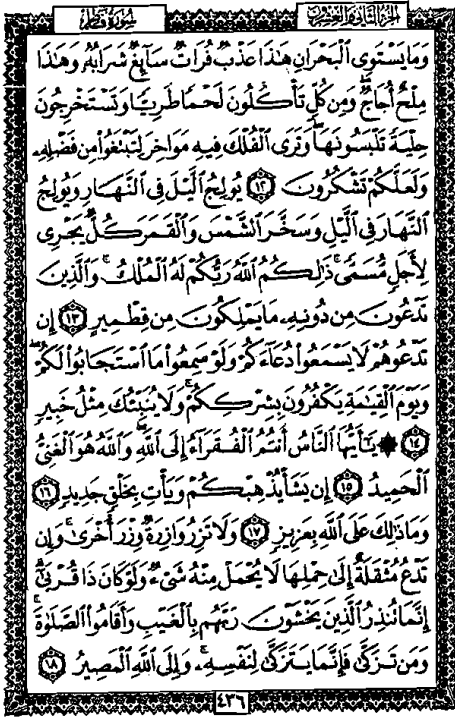 سُورَةُ فَاطِرٍ
الجُزْءُ الثَّانِي وَالعِشْرُونَ
وَمَا يَسْتَوِى ٱلْبَحْرَانِ هَٰذَا عَذْبٌ فُرَاتٌ سَآئِغٌ شَرَابُهُۥ وَهَٰذَا
مِلْحٌ أُجَاجٌ ۖ وَمِن كُلٍّ تَأْكُلُونَ لَحْمًا طَرِيًّا وَتَسْتَخْرِجُونَ
حِلْيَةً تَلْبَسُونَهَا ۖ وَتَرَى ٱلْفُلْكَ فِيهِ مَوَاخِرَ لِتَبْتَغُوا۟ مِن فَضْلِهِۦ
وَلَعَلَّكُمْ تَشْكُرُونَ ١٢ يُولِجُ ٱلَّيْلَ فِى ٱلنَّهَارِ وَيُولِجُ
ٱلنَّهَارَ فِى ٱلَّيْلِ وَسَخَّرَ ٱلشَّمْسَ وَٱلْقَمَرَ كُلٌّ يَجْرِى
لِأَجَلٍ مُّسَمًّى ۚ ذَٰلِكُمُ ٱللَّهُ رَبُّكُمْ لَهُ ٱلْمُلْكُ ۚ وَٱلَّذِينَ
تَدْعُونَ مِن دُونِهِۦ مَا يَمْلِكُونَ مِن قِطْمِيرٍ ١٣ إِن
تَدْعُوهُمْ لَا يَسْمَعُوا۟ دُعَآءَكُمْ وَلَوْ سَمِعُوا۟ مَا ٱسْتَجَابُوا۟ لَكُمْ ۖ
وَيَوْمَ ٱلْقِيَٰمَةِ يَكْفُرُونَ بِشِرْكِكُمْ ۚ وَلَا يُنَبِّئُكَ مِثْلُ خَبِيرٍ
١٤ ۞ يَٰٓأَيُّهَا ٱلنَّاسُ أَنتُمُ ٱلْفُقَرَآءُ إِلَى ٱللَّهِ ۖ وَٱللَّهُ هُوَ ٱلْغَنِىُّ
ٱلْحَمِيدُ ١٥ إِن يَشَأْ يُذْهِبْكُمْ وَيَأْتِ بِخَلْقٍ جَدِيدٍ ١٦
وَمَا ذَٰلِكَ عَلَى ٱللَّهِ بِعَزِيزٍ ١٧ وَلَا تَزِرُ وَازِرَةٌ وِزْرَ أُخْرَىٰ ۚ وَإِن
تَدْعُ مُثْقَلَةٌ إِلَىٰ حِمْلِهَا لَا يُحْمَلْ مِنْهُ شَىْءٌ وَلَوْ كَانَ ذَا قُرْبَىٰٓ ۗ
إِنَّمَا تُنذِرُ ٱلَّذِينَ يَخْشَوْنَ رَبَّهُم بِٱلْغَيْبِ وَأَقَامُوا۟ ٱلصَّلَوٰةَ ۚ
وَمَن تَزَكَّىٰ فَإِنَّمَا يَتَزَكَّىٰ لِنَفْسِهِۦ ۚ وَإِلَى ٱللَّهِ ٱلْمَصِيرُ ١٨
٤٣٦